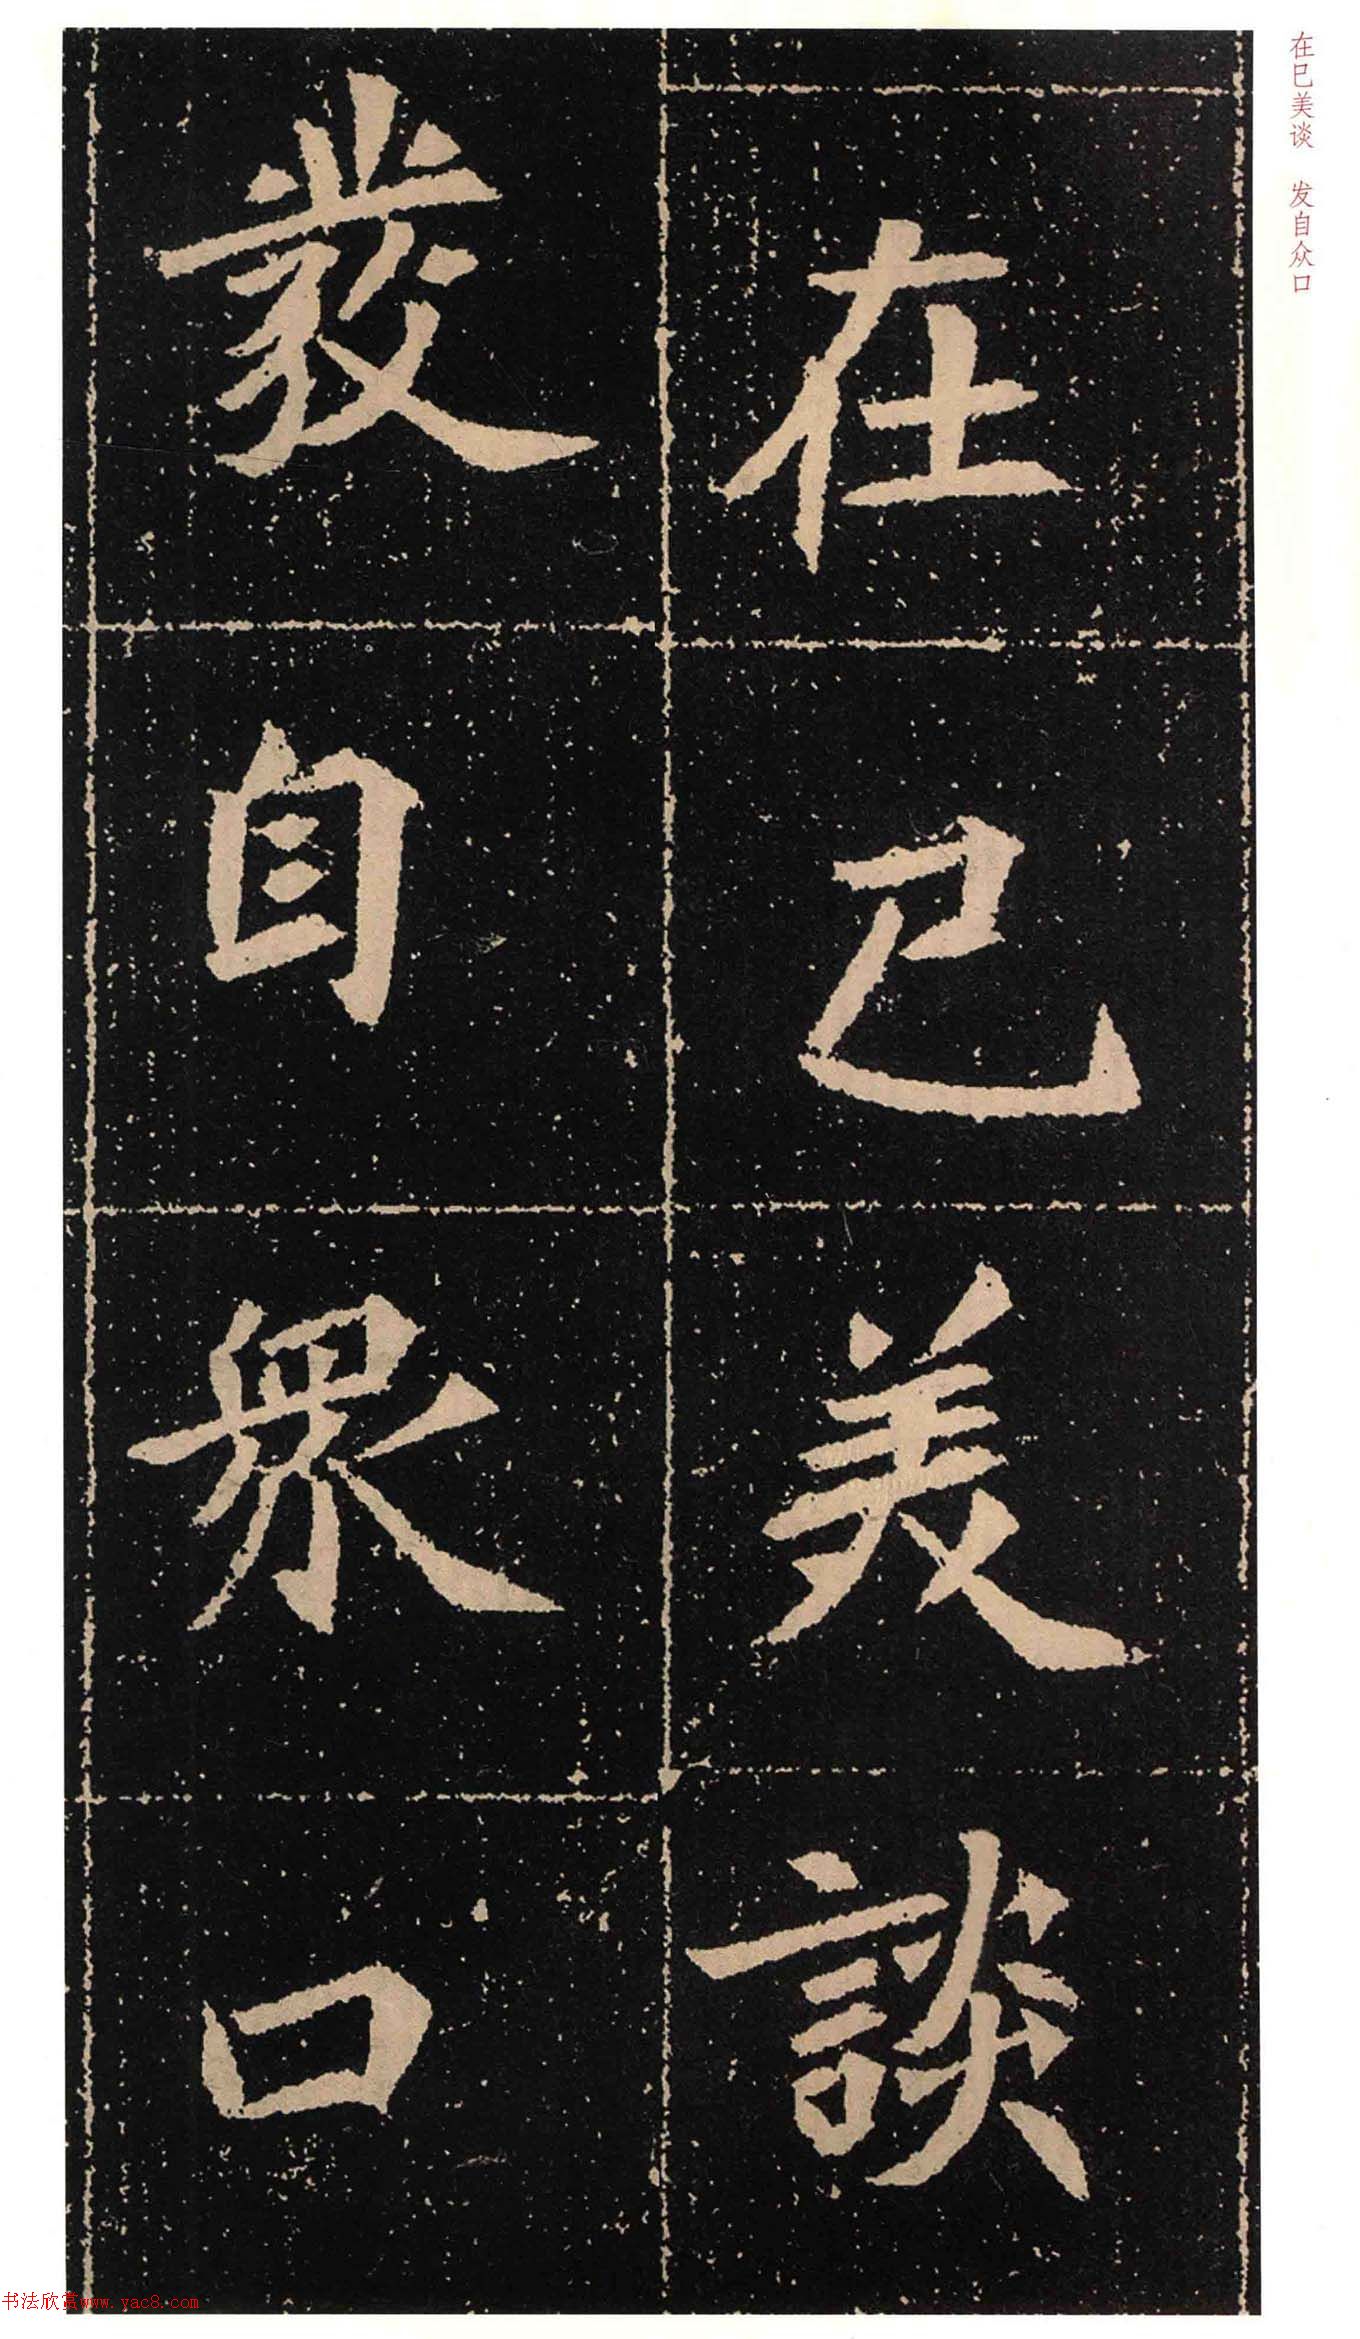 在己美談
發自眾口
在已美谈 发自众口
书法欣赏www.yac8.com